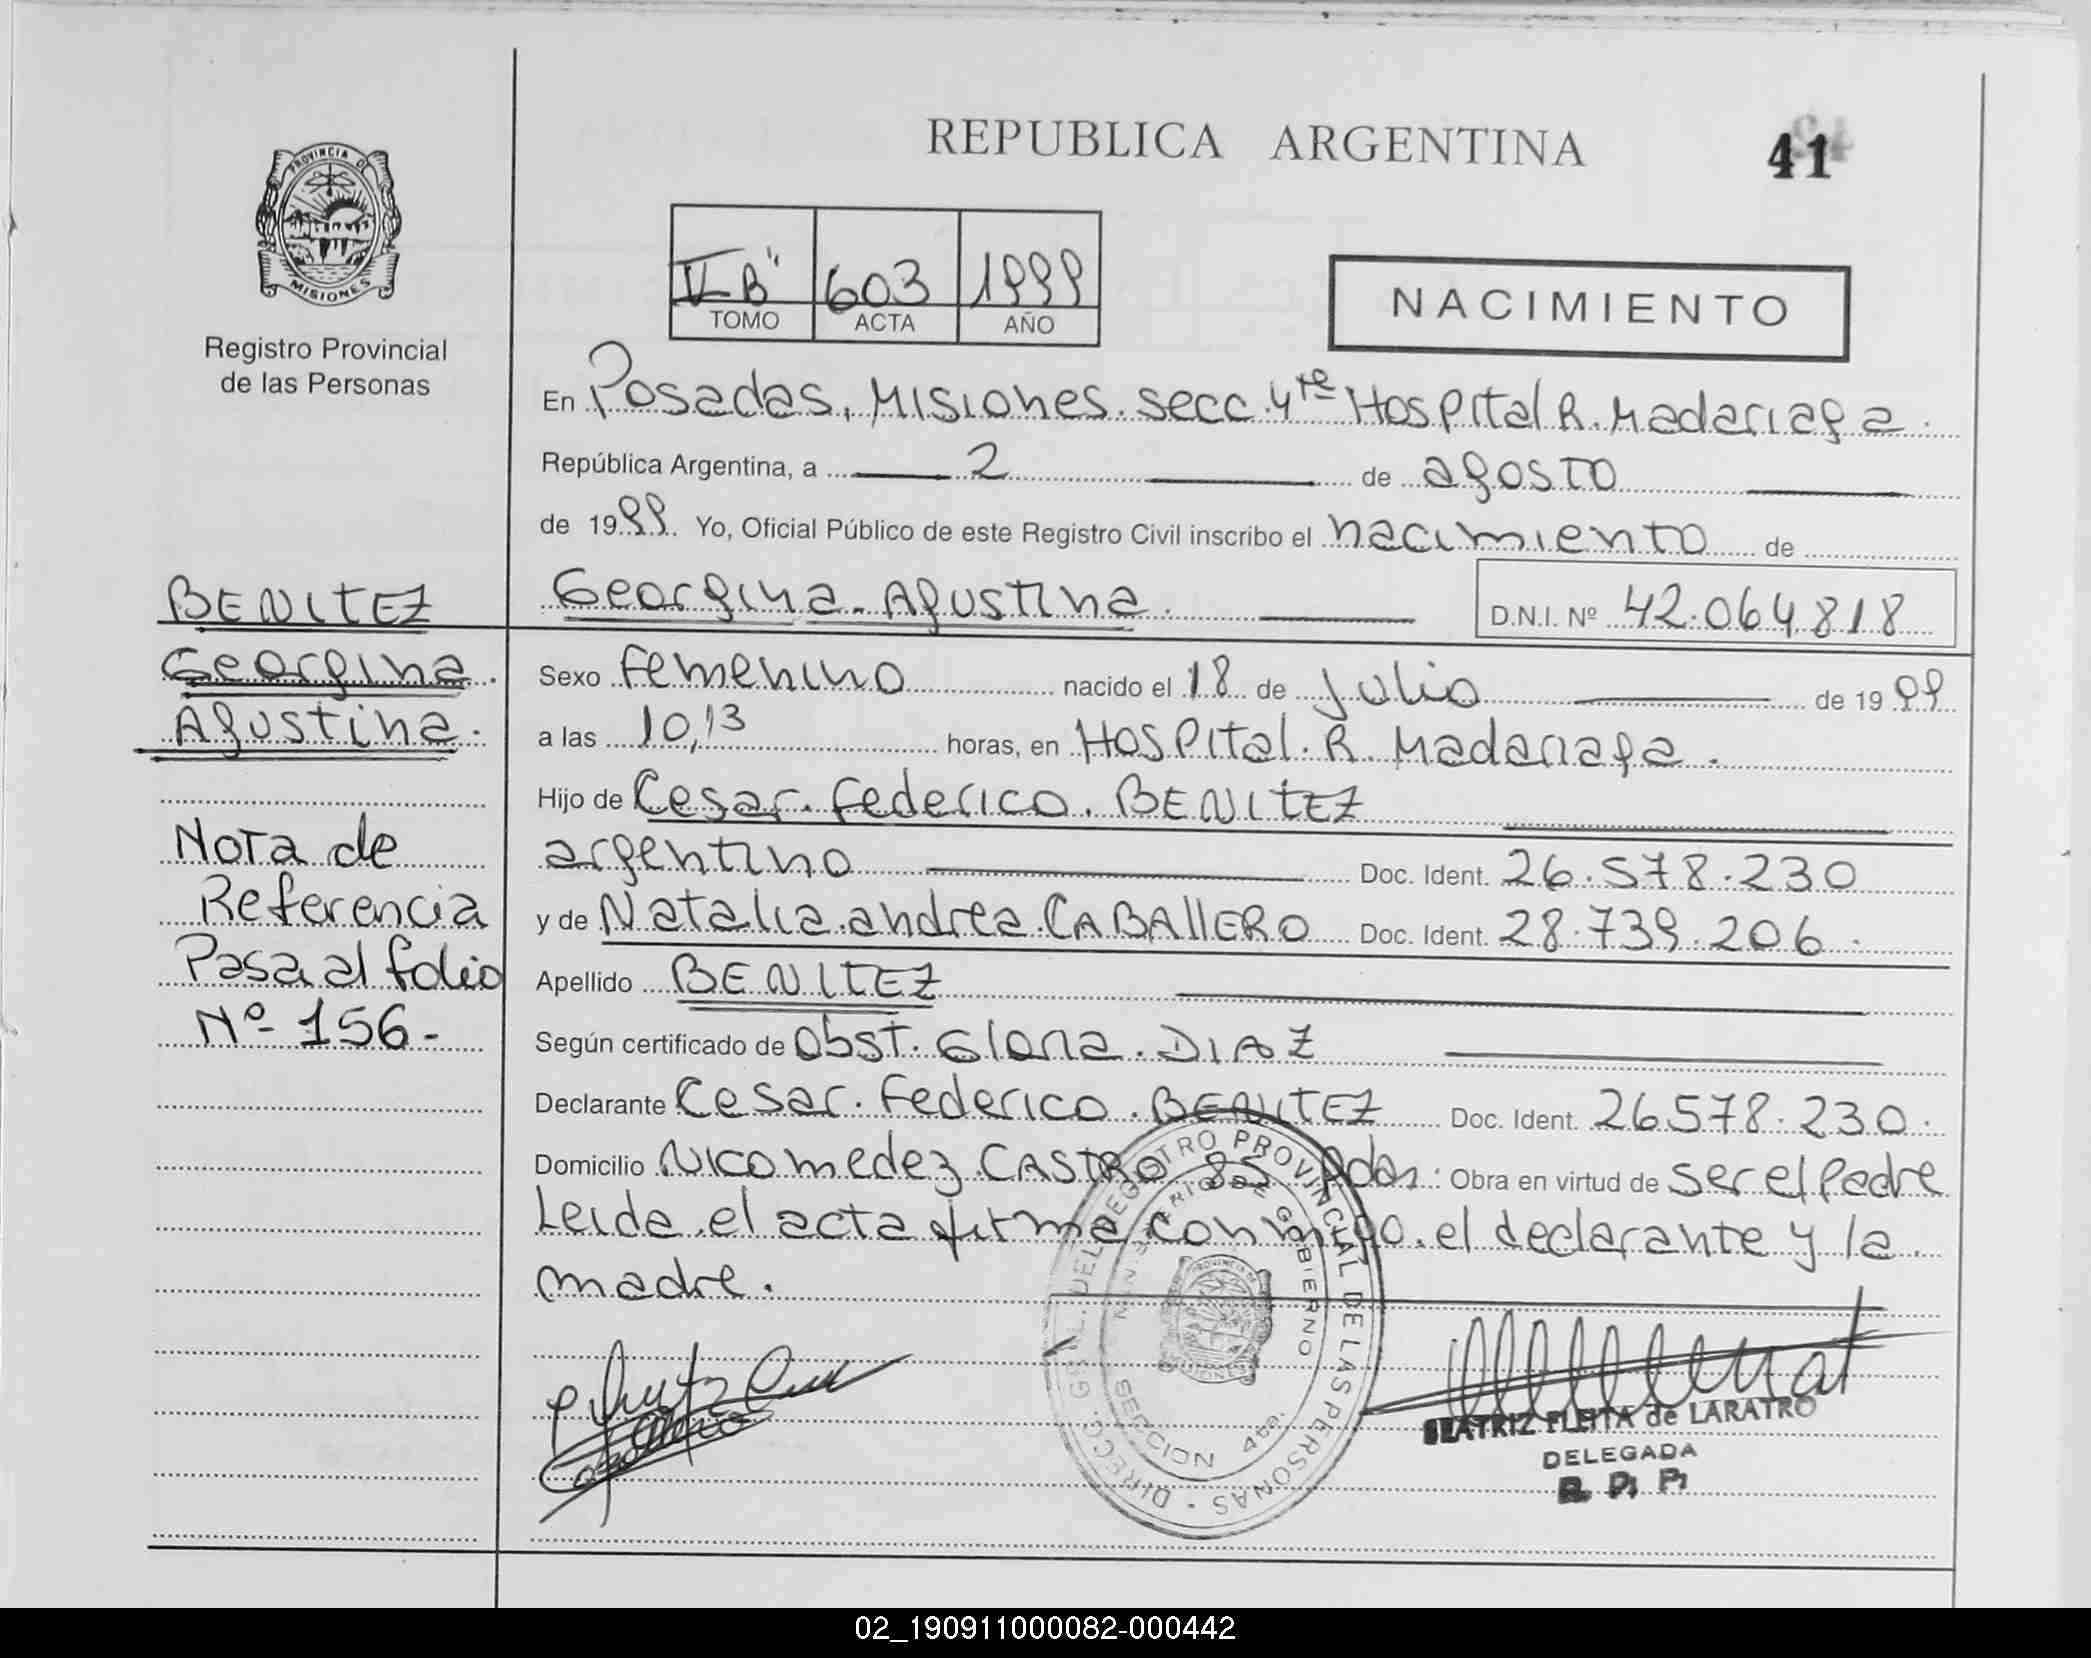 REPUBLICA ARGENTINA
41
PROVINCIA DE
MISIONES
Registro Provincial
de las Personas
V "B" 603 1999
TOMO ACTA AÑO
NACIMIENTO
En Posadas, Misiones. secc. 4ta Hospital R. Madariaga.
República Argentina, a 2 de agosto
de 1999. Yo, Oficial Público de este Registro Civil inscribo el nacimiento de
Georgina Agustina. D.N.I. Nº 42.064.818
Sexo femenino nacido el 18 de Julio de 1999
a las 10,13 horas, en Hospital R. Madariaga.
Hijo de Cesar Federico BENITEZ
argentino Doc. Ident. 26.578.230
y de Natalia andrea CABAllERO Doc. Ident. 28.739.206.
Apellido BENITEZ
Según certificado de Obst. Gloria DIAZ
Declarante Cesar Federico BENITEZ Doc. Ident. 26578.230.
Domicilio Nicomedez CASTRO 85 Pdas. Obra en virtud de ser el Padre
Leida el acta firma conmigo el declarante y la
madre.
BENITEZ
Georgina
Agustina.
Nota de
Referencia
Pasa al folio
Nº 156-
DIRECC. GRAL. DEL REGISTRO PROVINCIAL DE LAS PERSONAS
MINISTERIO DE GOBIERNO
PROVINCIA DE
MISIONES
SECCION 4ta.
BEATRIZ FLEITA de LARATRO
DELEGADA
R. P. P.
02_190911000082-000442